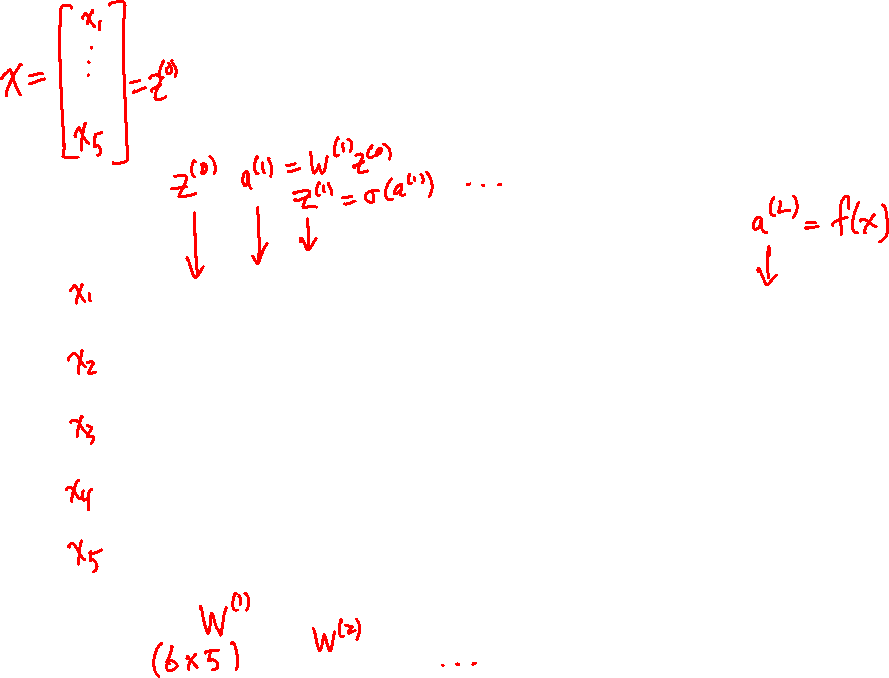 x = [x₁ ⋮ x₅] = z⁽⁰⁾
z⁽⁰⁾ a⁽¹⁾ = W⁽¹⁾z⁽⁰⁾
z⁽¹⁾ = σ(a⁽¹⁾) ...
a⁽ᴸ⁾ = f(x)
x₁
x₂
x₃
x₄
x₅
W⁽¹⁾
(6 x 5)
W⁽²⁾
...